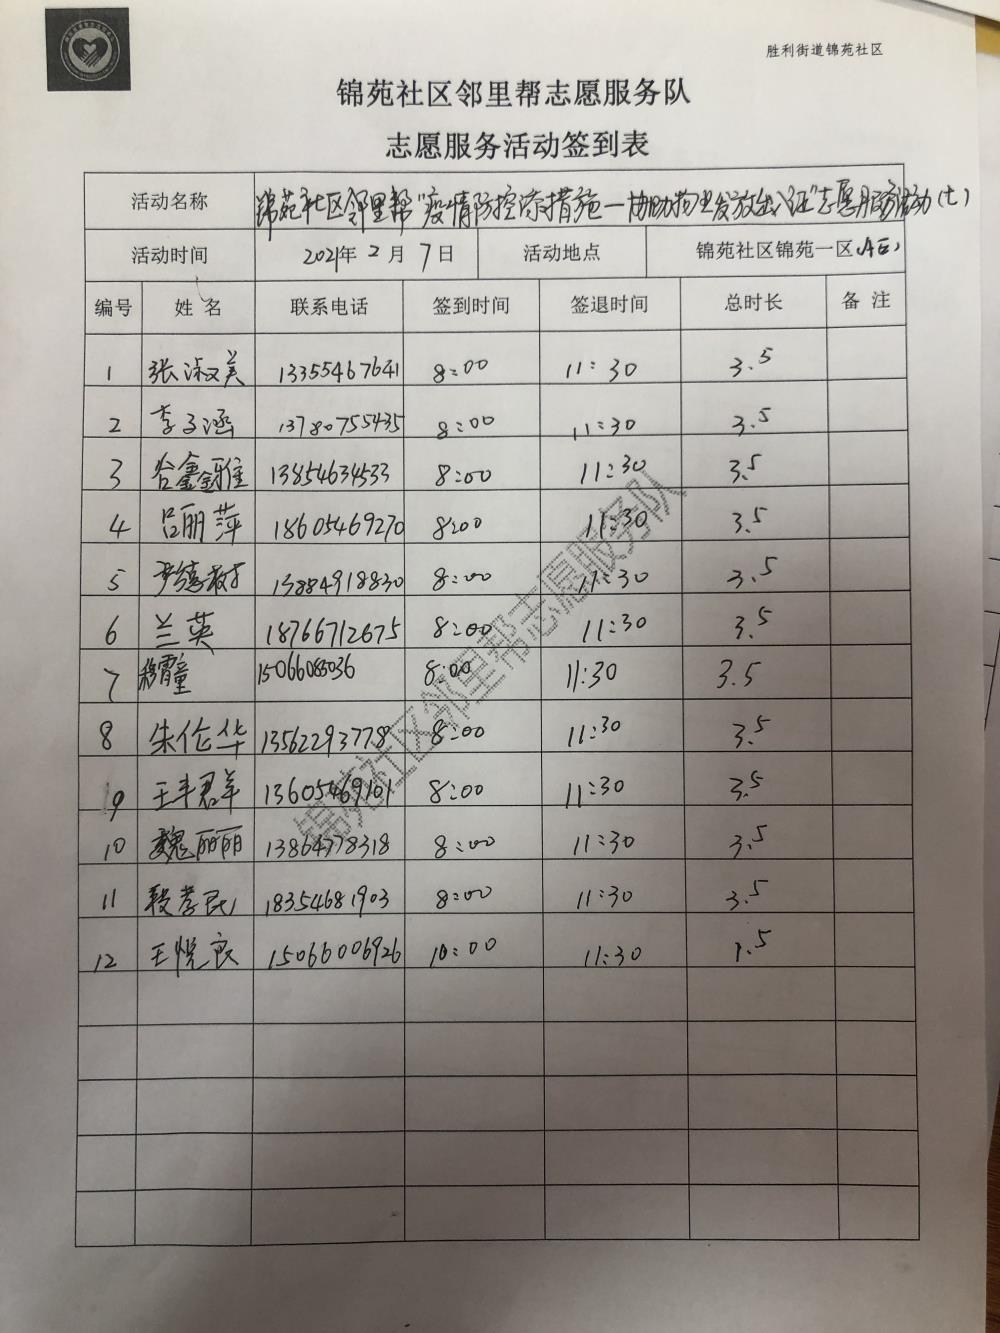 胜利街道锦苑社区
锦苑社区邻里帮志愿服务队
志愿服务活动签到表
活动名称 锦苑社区邻里帮"疫情防控添措施一协助物业发放出入证"志愿服务活动(七)
活动时间 2021年 2月 7日 活动地点 锦苑社区锦苑一区A区
编号 姓名 联系电话 签到时间 签退时间 总时长 备注
1 张淑美 13355467641 8:00 11:30 3.5
2 李子涵 13780755435 8:00 11:30 3.5
3 13854634533 8:00 11:30 3.5
4 吕丽萍 18605469270 8:00 11:30 3.5
5 13884918830 8:00 11:30 3.5
6 兰英 18766712675 8:00 11:30 3.5
7 15066085036 8:00 11:30 3.5
8 朱伦华 13562293778 8:00 11:30 3.5
9 13605469101 8:00 11:30 3.5
10 魏丽丽 13864778318 8:00 11:30 3.5
11 段孝民 18354681903 8:00 11:30 3.5
12 王悦良 15066006926 10:00 11:30 1.5
锦苑社区邻里帮志愿服务队